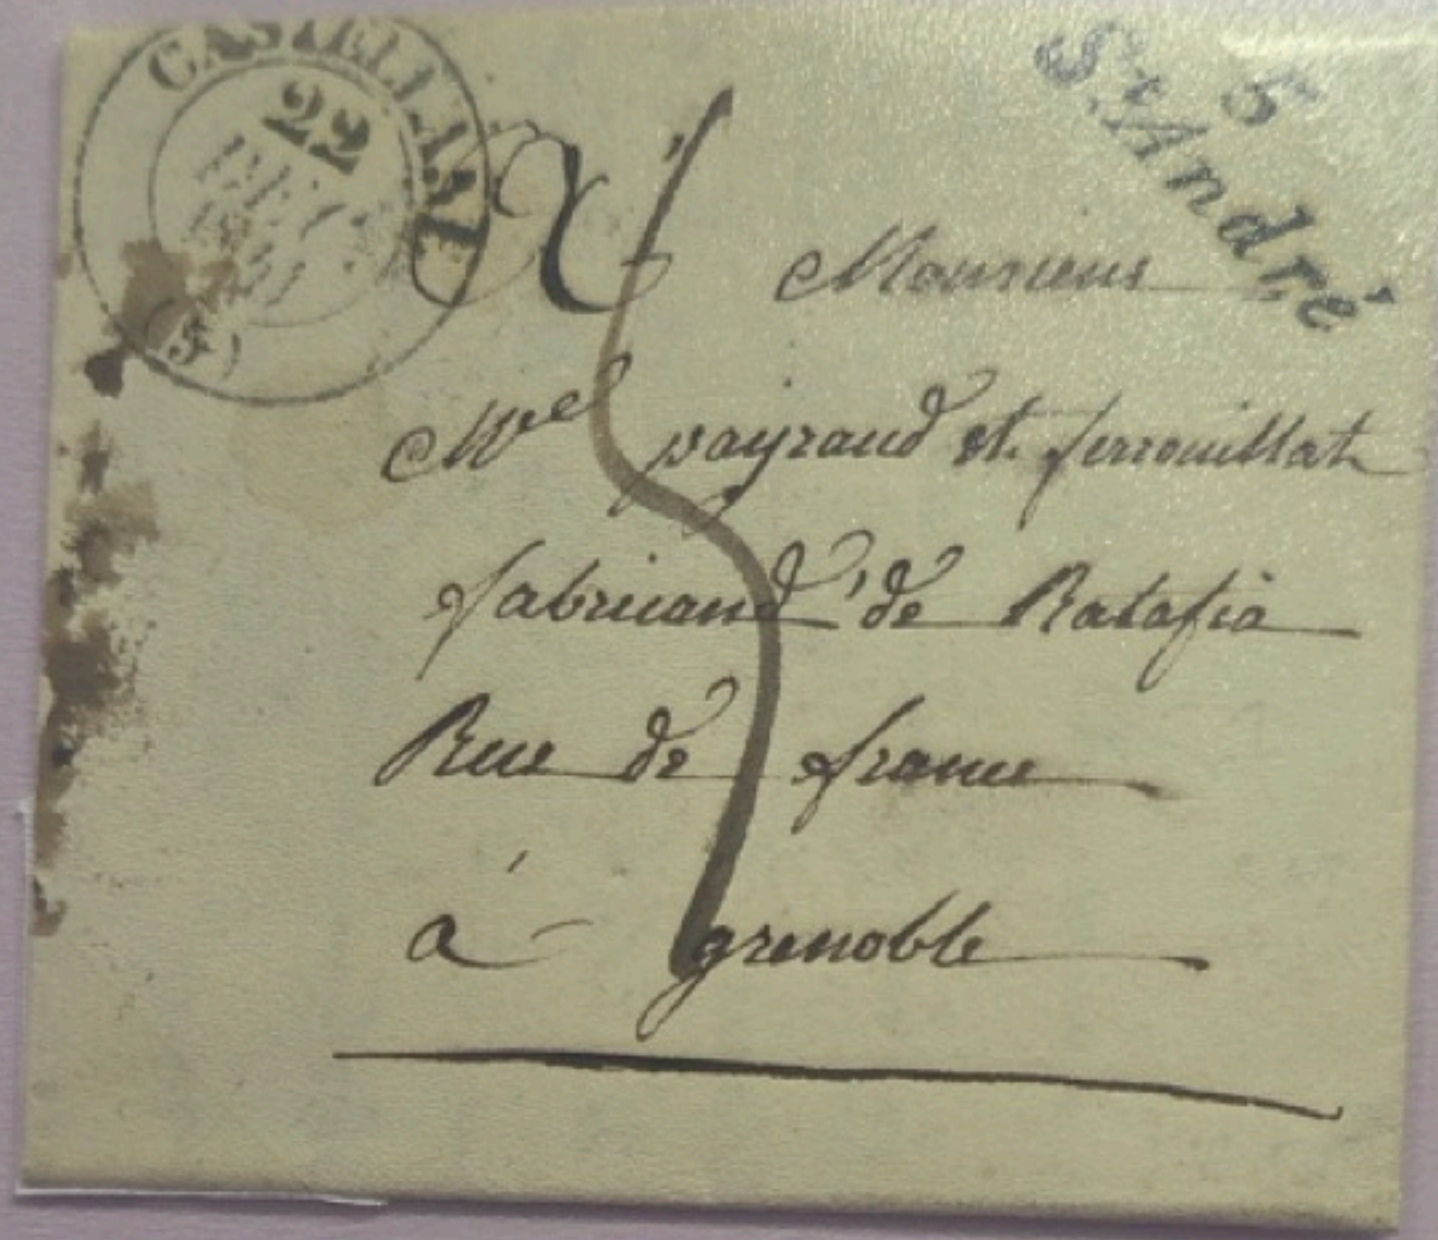 CASTELLANE
22
(5)
5
St. André
Monsieur
payraud et ferrouillat
fabricand de Ratafia
Rue de france
à grenoble